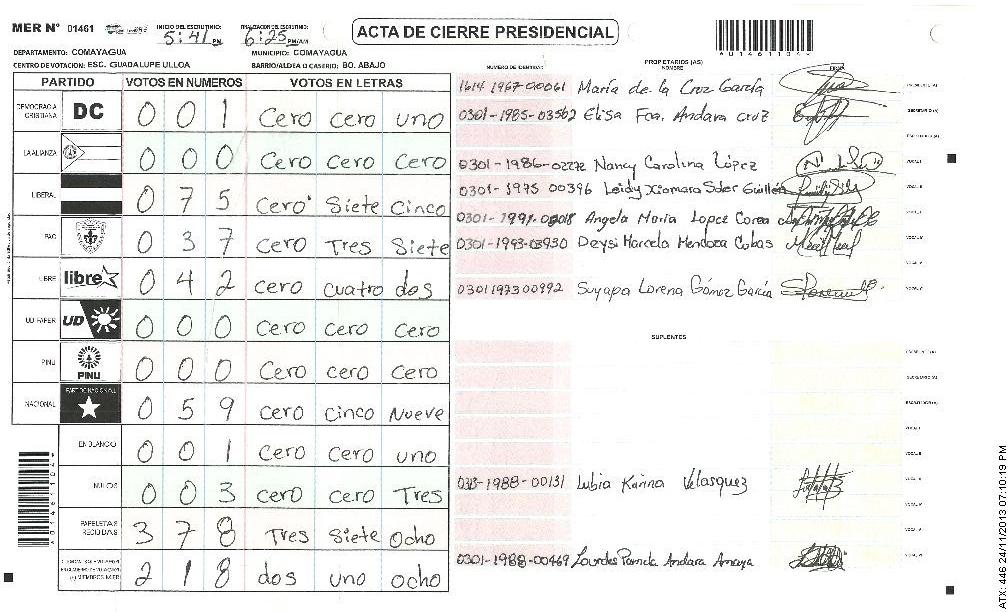 MER Nº 01461 INICIO DEL ESCRUTINIO: 5:41 PM 6:25 PM/AM ACTA DE CIERRE PRESIDENCIAL
DEPARTAMENTO: COMAYAGUA MUNICIPIO: COMAYAGUA
CENTRO DE VOTACION: ESC. GUADALUPE ULLOA BARRIO/ALDEA O CASERIO: BO. ABAJO
PARTIDO VOTOS EN NUMEROS VOTOS EN LETRAS
NUMERO DE IDENTIDAD PROPIETARIOS (AS) NOMBRE FIRMA
DEMOCRACIA CRISTIANA DC 0 0 1 Cero cero uno
LA ALIANZA 0 0 0 Cero cero cero
LIBERAL 0 7 5 Cero Siete Cinco
PAC 0 3 7 Cero Tres Siete
LIBRE libre 0 4 2 cero cuatro dos
UD-FAPER UD 0 0 0 Cero cero cero
PINU PINU 0 0 0 Cero cero cero
NACIONAL PARTIDO NACIONAL 0 5 9 cero cinco nueve
EN BLANCO 0 0 1 cero cero uno
NULOS 0 0 3 cero cero Tres
PAPELETAS RECIBIDAS 3 7 8 Tres Siete Ocho
2 1 8 dos uno ocho
1614 1967-00061 María de la Cruz García
0301-1985-03562 Elisa Fca. Andara cruz
0301-1986-02272 Nancy Carolina López
0301-1975 00396 Leidy Xiomara Soler Guillén
Angela Maria Lopez Corea
0301-1993-03930 Deysi Marcela Mendoza Cubas
0301197300992 Suyapa Lorena Gómez García
SUPLENTES
1988-00131 Lubia Karina Velasquez
0301-1988-00469 Lourdes Pamela Andara Amaya
ATX: 446 24/11/2013 07:10:19 PM